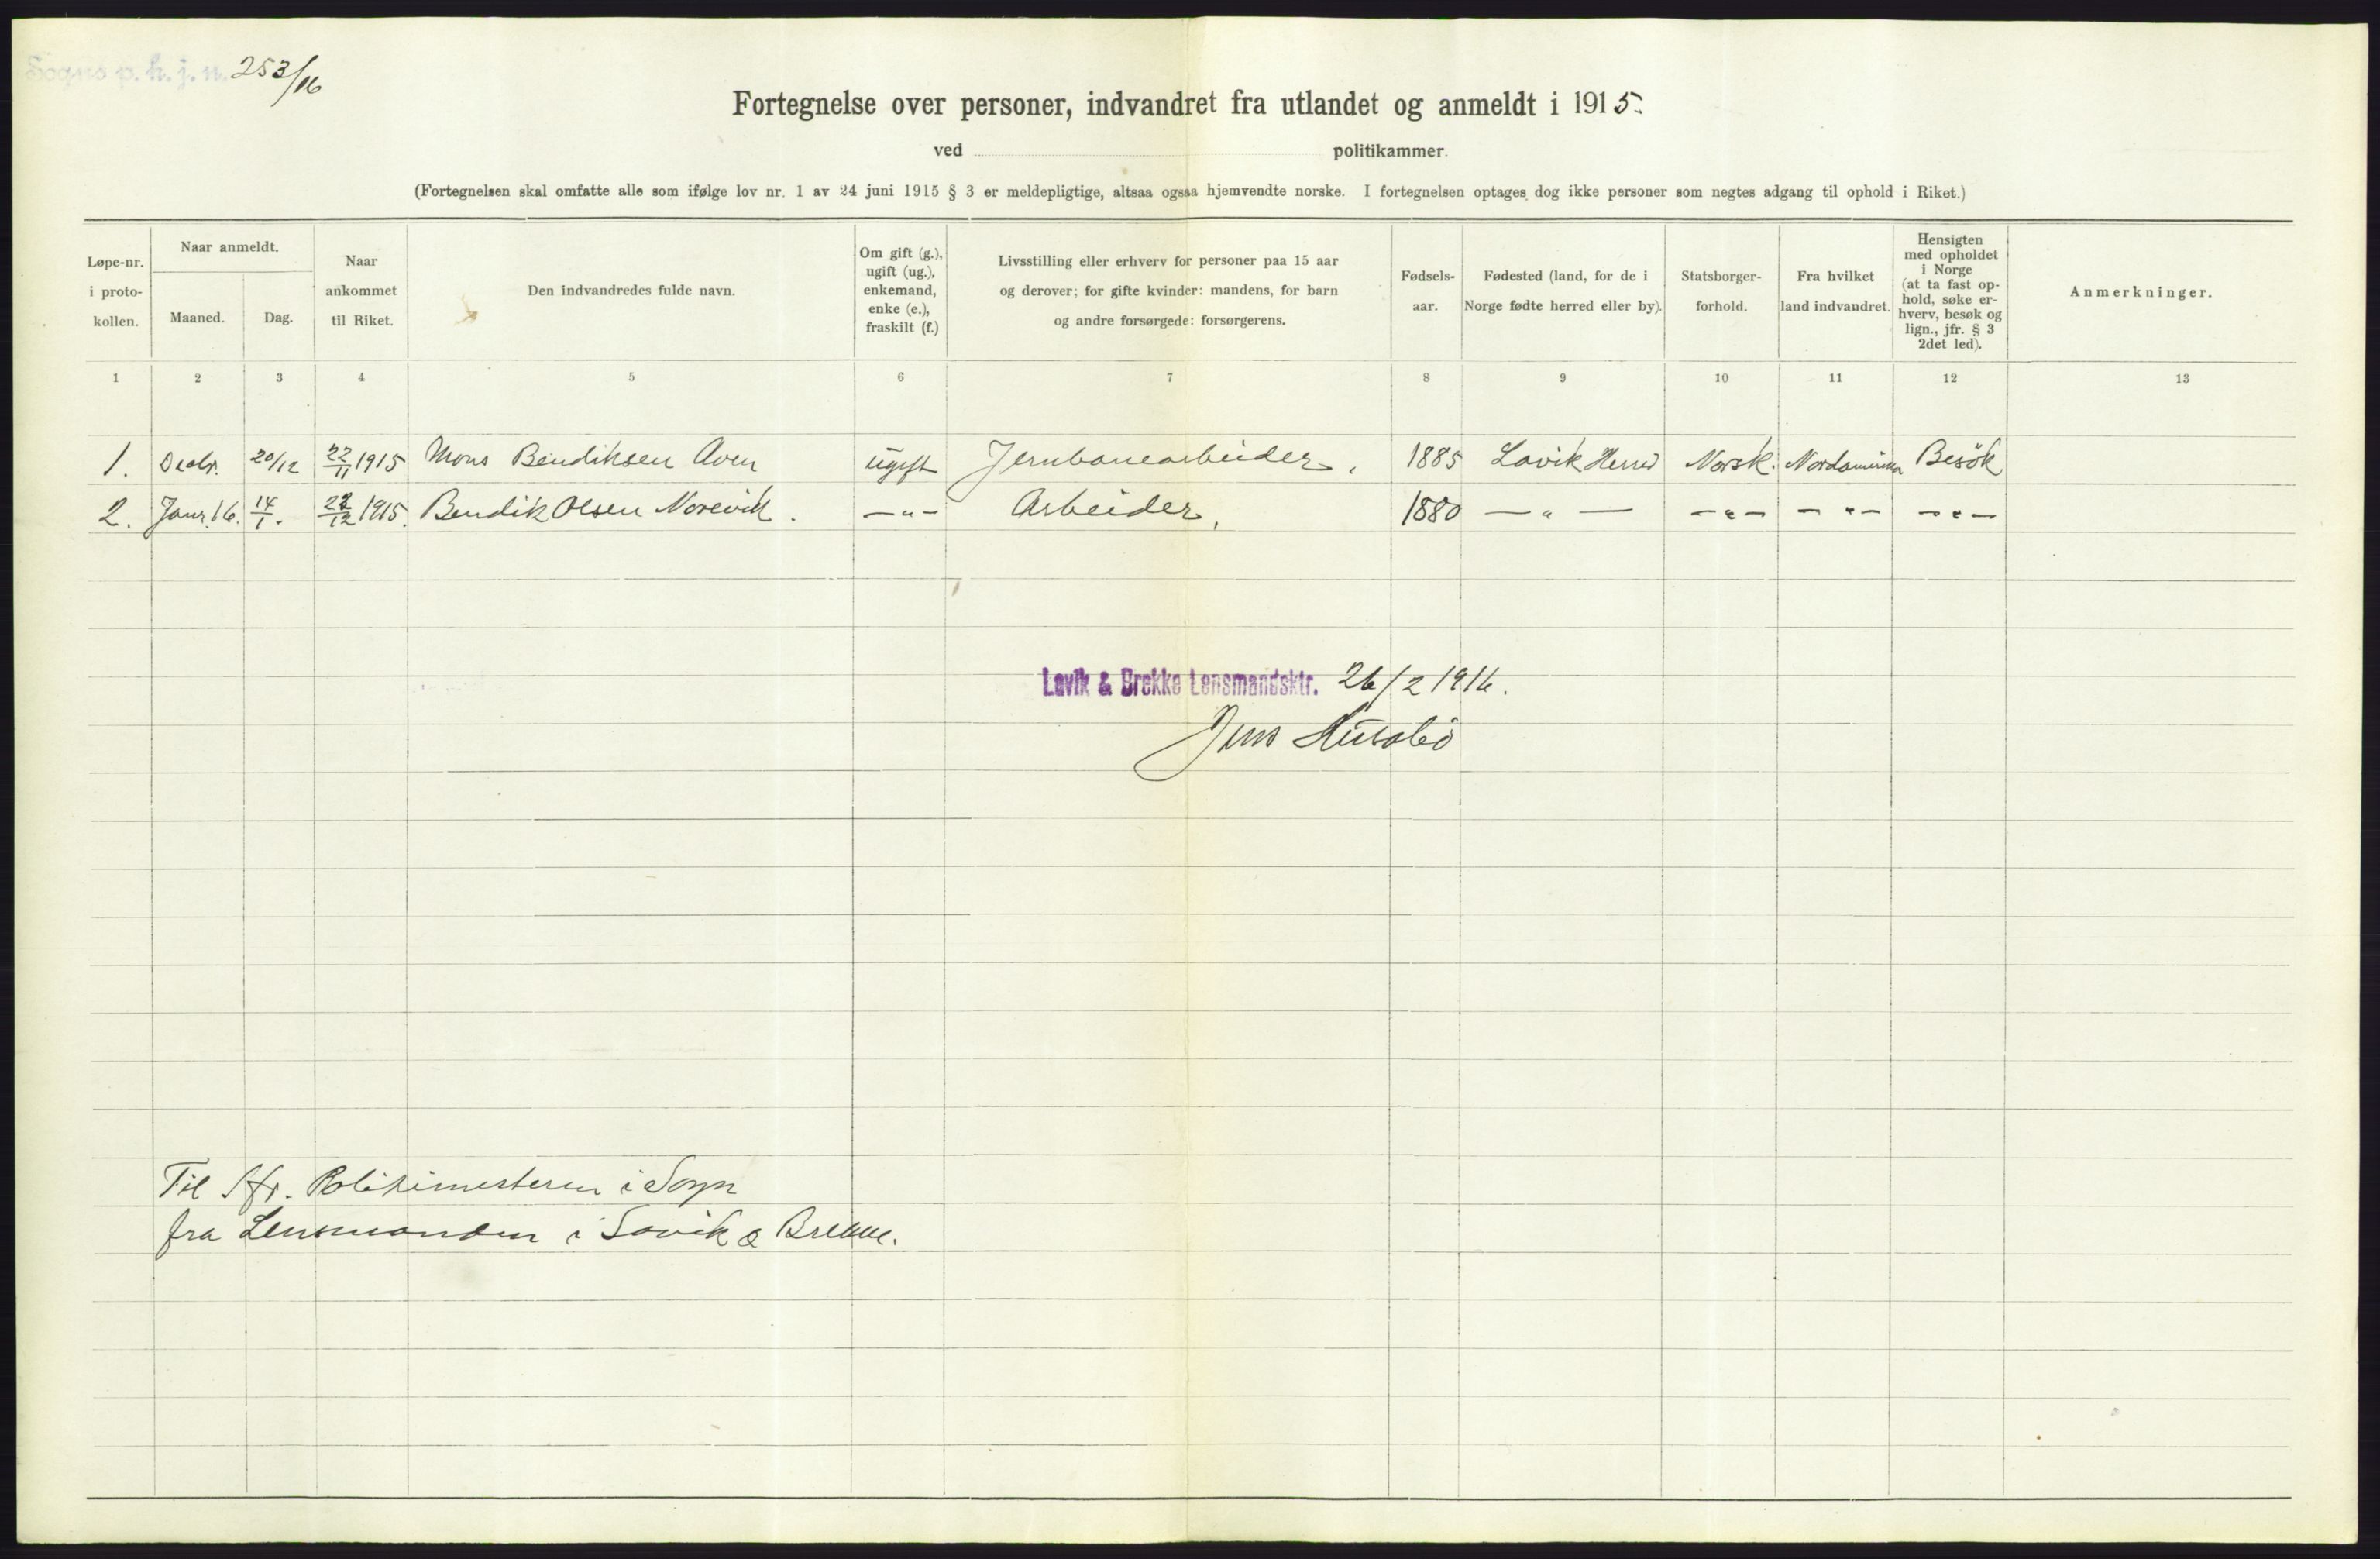 Sogns p. k. j. n. 253/16
Fortegnelse over personer, indvandret fra utlandet og anmeldt i 1915.
ved politikammer.
(Fortegnelsen skal omfatte alle som ifølge lov nr. 1 av 24 juni 1915 § 3 er meldepligtige, altsaa ogsaa hjemvendte norske. I fortegnelsen optages dog ikke personer som negtes adgang til ophold i Riket.)
Løpe-nr.
i proto-
kollen.
Naar anmeldt.
Maaned.
Dag.
Naar
ankommet
til Riket.
Den indvandredes fulde navn.
Om gift (g.),
ugift (ug.),
enkemand,
enke (e.),
fraskilt (f.)
Livsstilling eller erhverv for personer paa 15 aar
og derover; for gifte kvinder: mandens, for barn
og andre forsørgede: forsørgerens.
Fødsels-
aar.
Fødested (land, for de i
Norge fødte herred eller by).
Statsborger-
forhold.
Fra hvilket
land indvandret.
Hensigten
med opholdet
i Norge
(at ta fast op-
hold, søke er-
hverv, besøk og
lign., jfr. § 3
2det led).
Anmerkninger.
1 2 3 4 5 6 7 8 9 10 11 12 13
1. Decbr. 20/12 22/11 1915 Mons Bendiksen Aven ugift Jernbanearbeider. 1885 Lavik Herred Norsk. Nordamerika Besök
2. Janr. 16. 14/1. 22/12 1915. Bendik Olsen Norevik. — " — Arbeider. 1880 — " — — " — — " — — " —
Lavik & Brekke Lensmandsktr. 26/2 1916.
Jens Husabö
Til Hr. Politimesteren i Sogn
fra Lensmanden i Lavik & Brekke.